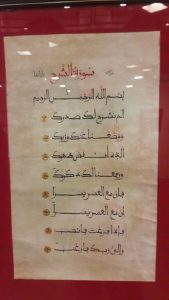 سورة الشرح
بسم الله الرحمن الرحيم
الم نشرح لك صدرك
ووضعنا عنك وزرك
الذي انقض ظهرك
ورفعنا لك ذكرك
فان مع العسر يسرا
ان مع العسر يسرا
فاذا فرغت فانصب
والى ربك فارغب